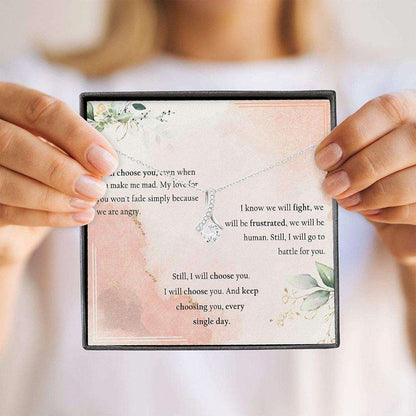 choose you, even when
make me mad. My love for
you won't fade simply because
we are angry.
I know we will fight, we
will be frustrated, we will be
human. Still, I will go to
battle for you.
Still, I will choose you.
I will choose you. And keep
choosing you, every
single day.